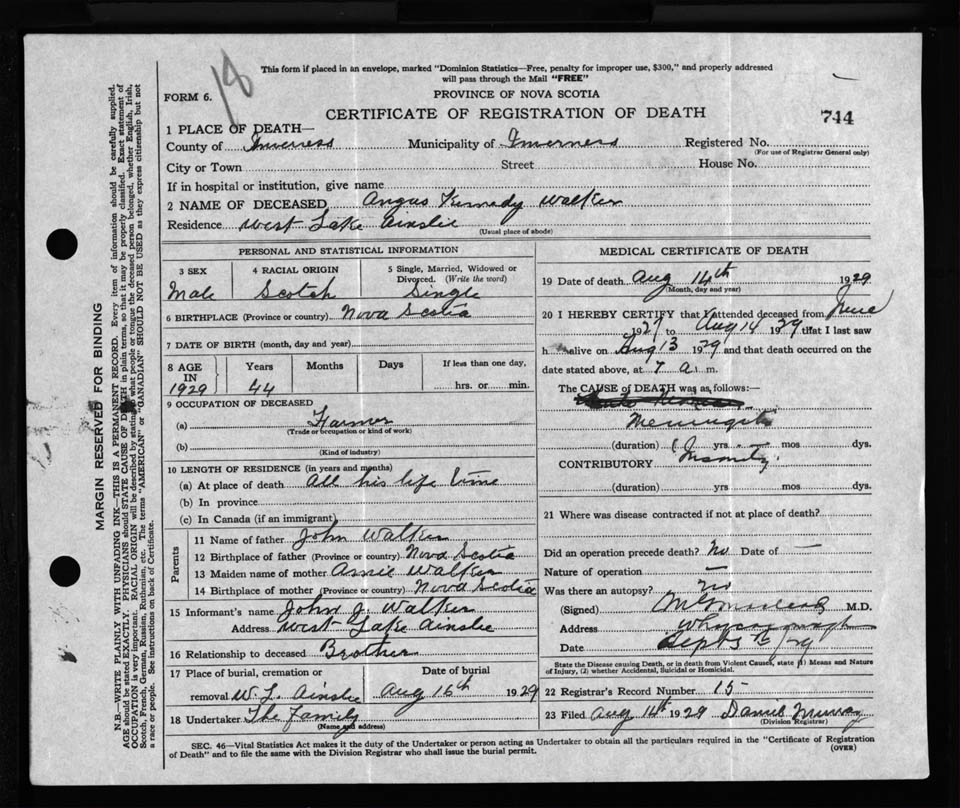 18
This form if placed in an envelope, marked "Dominion Statistics—Free, penalty for improper use, $300," and properly addressed
will pass through the Mail "FREE"
FORM 6.
PROVINCE OF NOVA SCOTIA
CERTIFICATE OF REGISTRATION OF DEATH
744
1 PLACE OF DEATH—
County of Inverness Municipality of Inverness Registered No.
(For use of Registrar General only)
City or Town Street House No.
If in hospital or institution, give name
2 NAME OF DECEASED Angus Kennedy Walker
Residence West Lake Ainslie
(Usual place of abode)
PERSONAL AND STATISTICAL INFORMATION
3 SEX 4 RACIAL ORIGIN 5 Single, Married, Widowed or Divorced. (Write the word)
Male Scotch Single
6 BIRTHPLACE (Province or country) Nova Scotia
7 DATE OF BIRTH (month, day and year)
8 AGE IN 1929 Years Months Days If less than one day,
44 hrs. or min.
9 OCCUPATION OF DECEASED
(a) Farmer
(Trade or occupation or kind of work)
(b)
(Kind of industry)
10 LENGTH OF RESIDENCE (in years and months)
(a) At place of death all his life time
(b) In province
(c) In Canada (if an immigrant)
Parents
11 Name of father John Walker
12 Birthplace of father (Province or country) Nova Scotia
13 Maiden name of mother Annie Walker
14 Birthplace of mother (Province or country) Nova Scotia
15 Informant's name John J. Walker
Address West Lake Ainslie
16 Relationship to deceased Brother
17 Place of burial, cremation or Date of burial
removal W. L. Ainslie Aug 16th 1929
18 Undertaker The Family
(Name and address)
MEDICAL CERTIFICATE OF DEATH
19 Date of death Aug 14th 1929
(Month, day and year)
20 I HEREBY CERTIFY that I attended deceased from June
1927 to Aug 14 1929 that I last saw
h alive on Aug 13 1929 and that death occurred on the
date stated above, at 7 a. m.
The CAUSE of DEATH was as follows:—
Meningitis
(duration) yrs. mos dys.
CONTRIBUTORY Insanity
(duration) yrs. mos. dys.
21 Where was disease contracted if not at place of death?
Did an operation precede death? no Date of —
Nature of operation —
Was there an autopsy? no
(Signed) M.D.
Address Whycocomagh
Date Sept 5th/29
State the Disease causing Death, or in death from Violent Causes, state (1) Means and Nature
of Injury, (2) whether Accidental, Suicidal or Homicidal.
22 Registrar's Record Number 15
23 Filed Aug 14th 1929 Daniel Murray
(Division Registrar)
SEC. 46—Vital Statistics Act makes it the duty of the Undertaker or person acting as Undertaker to obtain all the particulars required in the "Certificate of Registration
of Death" and to file the same with the Division Registrar who shall issue the burial permit.
(OVER)
MARGIN RESERVED FOR BINDING
N.B.—WRITE PLAINLY, WITH UNFADING INK—THIS IS A PERMANENT RECORD. Every item of information should be carefully supplied.
AGE should be stated EXACTLY. PHYSICIANS should STATE CAUSE OF DEATH in plain terms, so that it may be properly classified. Exact statement of
OCCUPATION is very important. RACIAL ORIGIN will be described by stating to what people or tongue the deceased person belonged, whether English, Irish,
Scotch, French, German, Russian, Ruthenian, etc. The terms "AMERICAN" or "CANADIAN" SHOULD NOT BE USED as they express citizenship but not
a race or people. See instructions on back of Certificate.